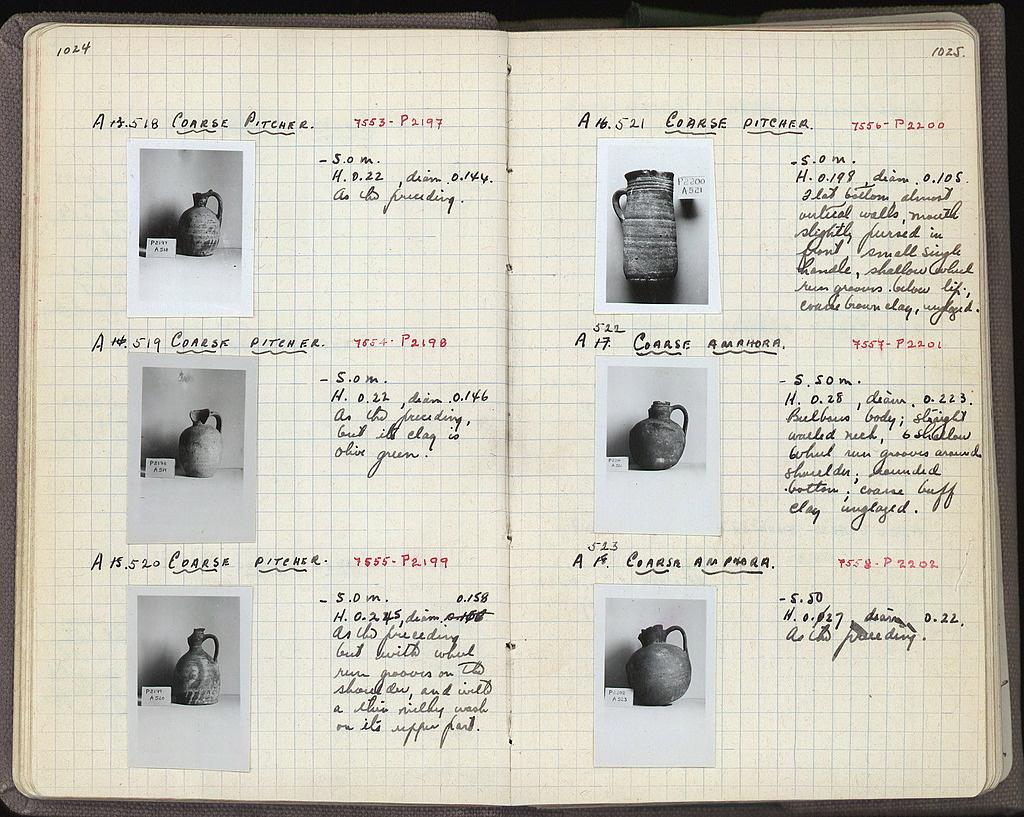 1024
A 13.518 COARSE PITCHER. 7553-P2197
P2197
A518
- 5.0 m.
H. 0.22, diam. 0.144.
As the preceding.
A 14.519 COARSE PITCHER. 7554-P2198
P2198
A519
- 5.0 m.
H. 0.22, diam. 0.146
As the preceding,
but its clay is
olive green.
A 15.520 COARSE PITCHER. 7555-P2199
P2199
A520
- 5.0 m. 0.158
H. 0.245, diam.
As the preceding
but with wheel
run grooves on the
shoulder, and with
a thin milky wash
on its upper part.
1025.
A 16.521 COARSE PITCHER. 7556-P2200
P2200
A521
- 5.0 m.
H. 0.198, diam. 0.105.
Flat bottom, almost
vertical walls, mouth
slightly pursed in
front, small single
handle, shallow wheel
run grooves below lip,
coarse brown clay, unglazed.
522
A 17. COARSE AMAHORA. 7557-P2201
- 5.50 m.
H. 0.28, diam. 0.223.
Bulbous body; straight
walled neck, 6 shallow
wheel run grooves around
shoulder; rounded
bottom; coarse buff
clay unglazed.
523
A 18. COARSE AMPHORA. 7558-P2202
P2202
A523
- 5.50
H. 0.27, diam. 0.22.
As the preceding.